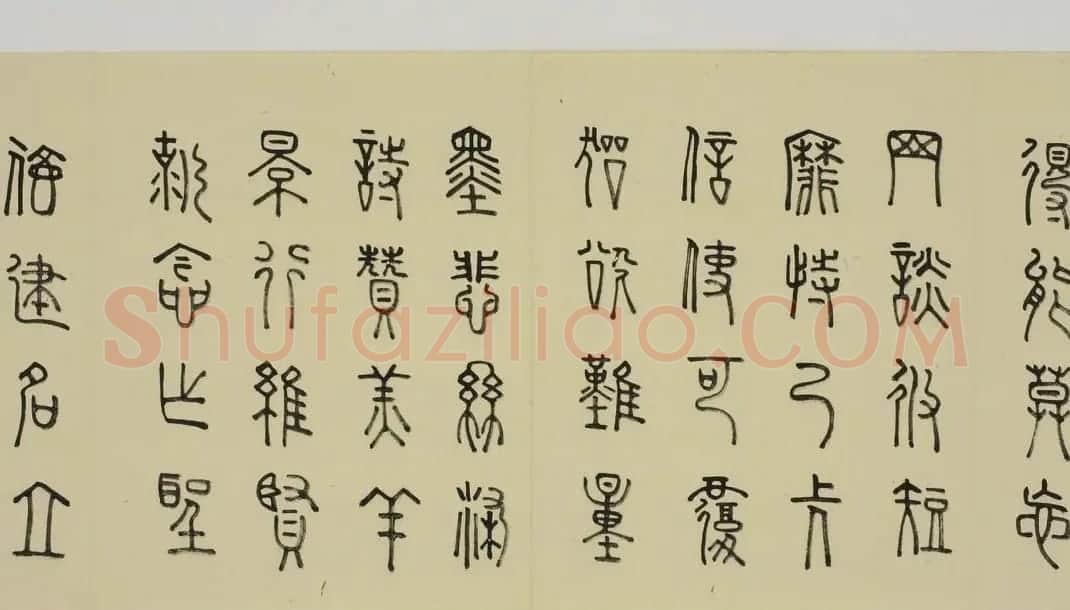 得能莫忘
罔談彼短
靡恃己長
信使可覆
器欲難量
墨悲絲染
詩贊羔羊
景行維賢
剋念作聖
德建名立
Shufaziliao.COM